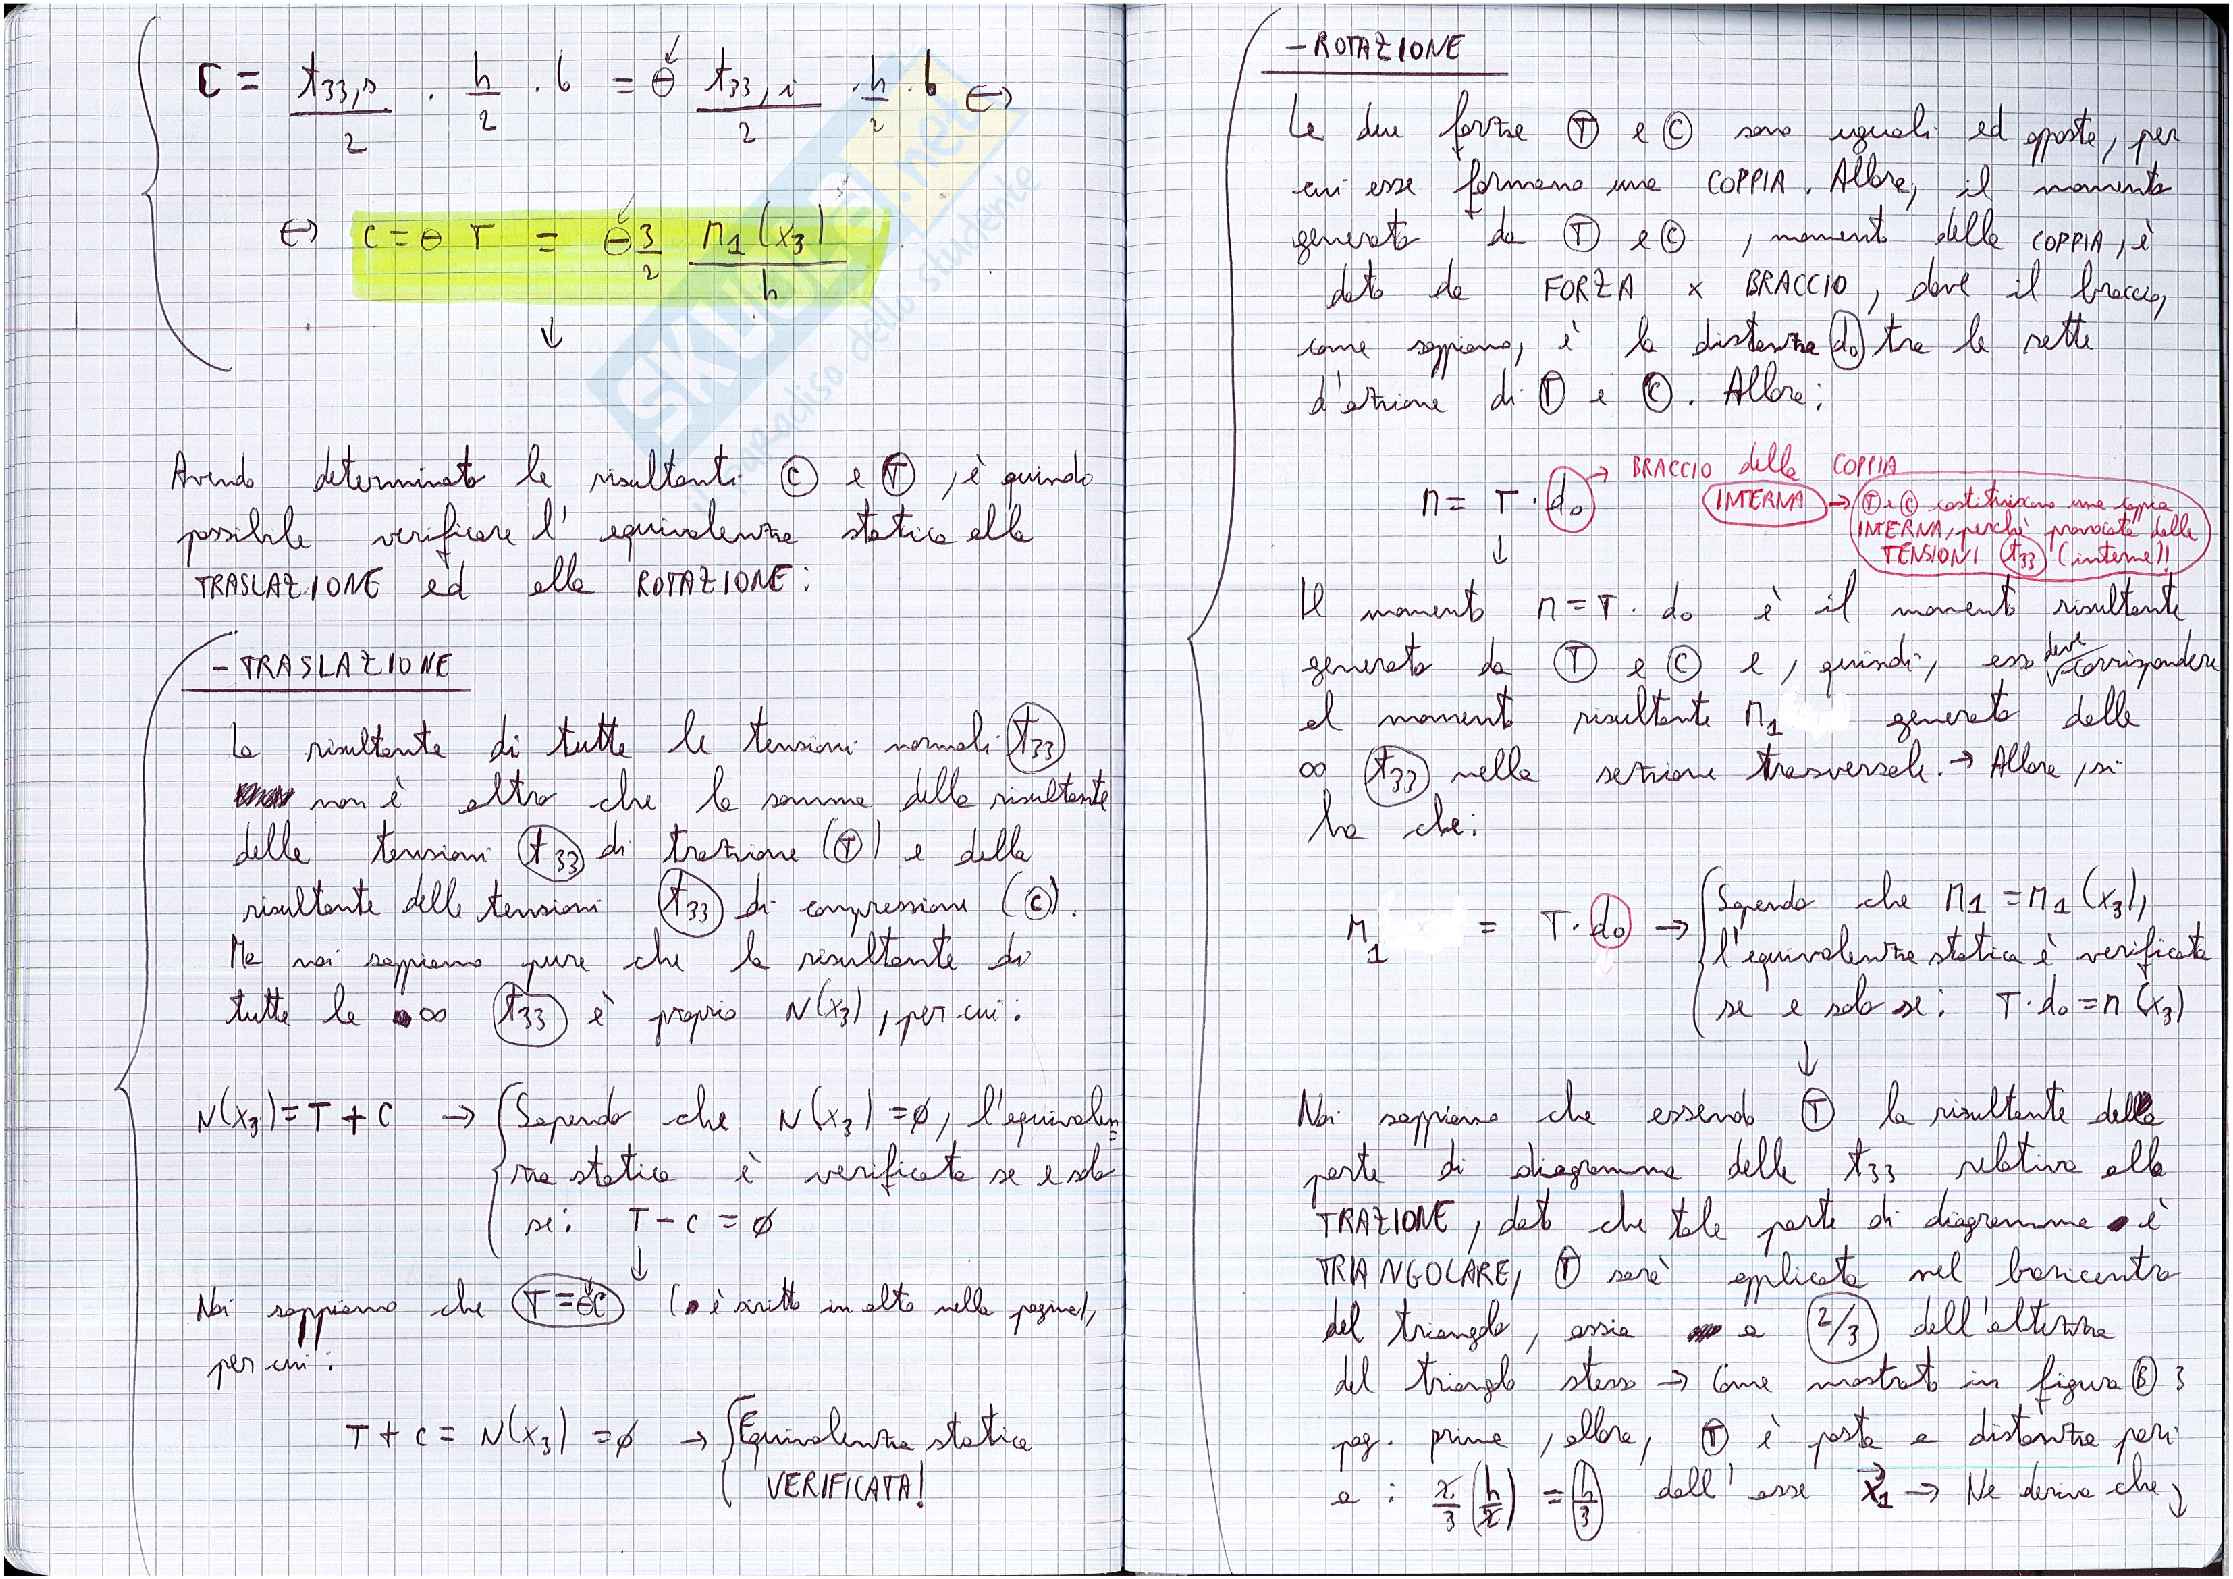 C = t33,s / 2 · h/2 · b = ⊖ t33,i / 2 · h/2 · b ⇔
⇔ C = ⊖ T = ⊖ 3/2 M1(x3) / h
↓
Avendo determinato le risultanti Ⓒ e Ⓣ, è quindi
possibile verificare l'equivalenza statica alla
TRASLAZIONE ed alla ROTAZIONE:
- TRASLAZIONE
La risultante di tutte le tensioni normali t33
non è altro che la somma della risultante
delle tensioni t33 di trazione (Ⓣ) e della
risultante delle tensioni t33 di compressione (Ⓒ).
Ma noi sappiamo pure che la risultante di
tutte le ∞ t33 è proprio N(x3), per cui:
N(x3) = T + C → { Sapendo che N(x3) = ∅, l'equivalen=
za statica è verificata se e solo
se: T - C = ∅
↓
Noi sappiamo che T = ⊖C (è scritto in alto nella pagina),
per cui:
T + C = N(x3) = ∅ → { Equivalenza statica
VERIFICATA!
- ROTAZIONE
Le due forze Ⓣ e Ⓒ sono uguali ed opposte, per
cui esse formano una COPPIA. Allora, il momento
generato da Ⓣ e Ⓒ, momento della COPPIA, è
dato da FORZA × BRACCIO, dove il braccio,
come sappiamo, è la distanza d0 tra le rette
d'azione di Ⓣ e Ⓒ. Allora:
M = T · d0 → BRACCIO della COPPIA
INTERNA → Ⓣ e Ⓒ costituiscono una coppia
INTERNA, perché provocata dalle
TENSIONI t33 (interne)!
↓
Il momento M = T · d0 è il momento risultante
generato da Ⓣ e Ⓒ e, quindi, esso deve corrispondere
al momento risultante M1 generato dalle
∞ t33 nella sezione trasversale. → Allora, si
ha che:
M1 = T · d0 → { Sapendo che M1 = M1(x3),
l'equivalenza statica è verificata
se e solo se: T · d0 = M(x3)
↓
Noi sappiamo che essendo Ⓣ la risultante della
parte di diagramma delle t33 relativa alla
TRAZIONE, dato che tale parte di diagramma è
TRIANGOLARE, Ⓣ sarà applicata nel baricentro
del triangolo, ossia a 2/3 dell'altezza
del triangolo stesso → Come mostrato in figura Ⓑ 3
pag. prima, allora, Ⓣ è posta a distanza pari
a: 2/3 (h/2) = h/3 dall'asse x1 → Ne deriva che ↓
SKUOLA.net
il paradiso dello studente